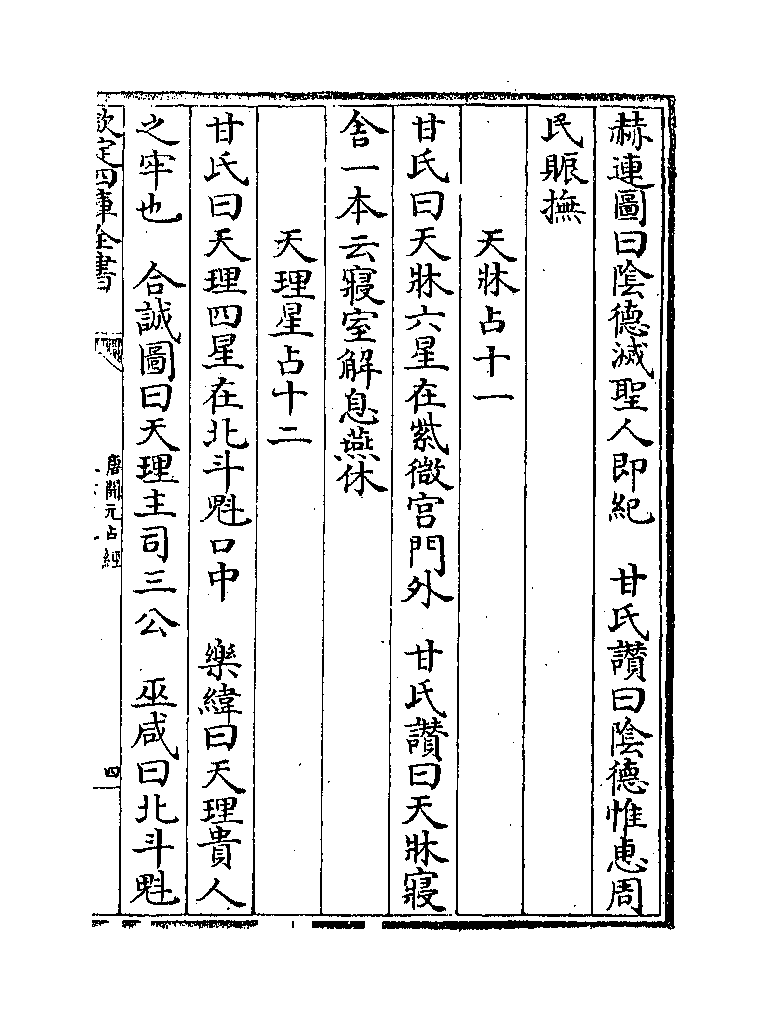 赫連圖曰陰德滅聖人即紀　甘氏讚曰陰德惟恵周
民賑撫
天牀占十一
甘氏曰天牀六星在紫微宫門外　甘氏讚曰天牀寢
舍一本云寢室解息燕休
天理星占十二
甘氏曰天理四星在北斗魁口中　樂緯曰天理貴人
之牢也　合誠圖曰天理主司三公　巫咸曰北斗魁
欽定四庫全書
唐開元占經
四